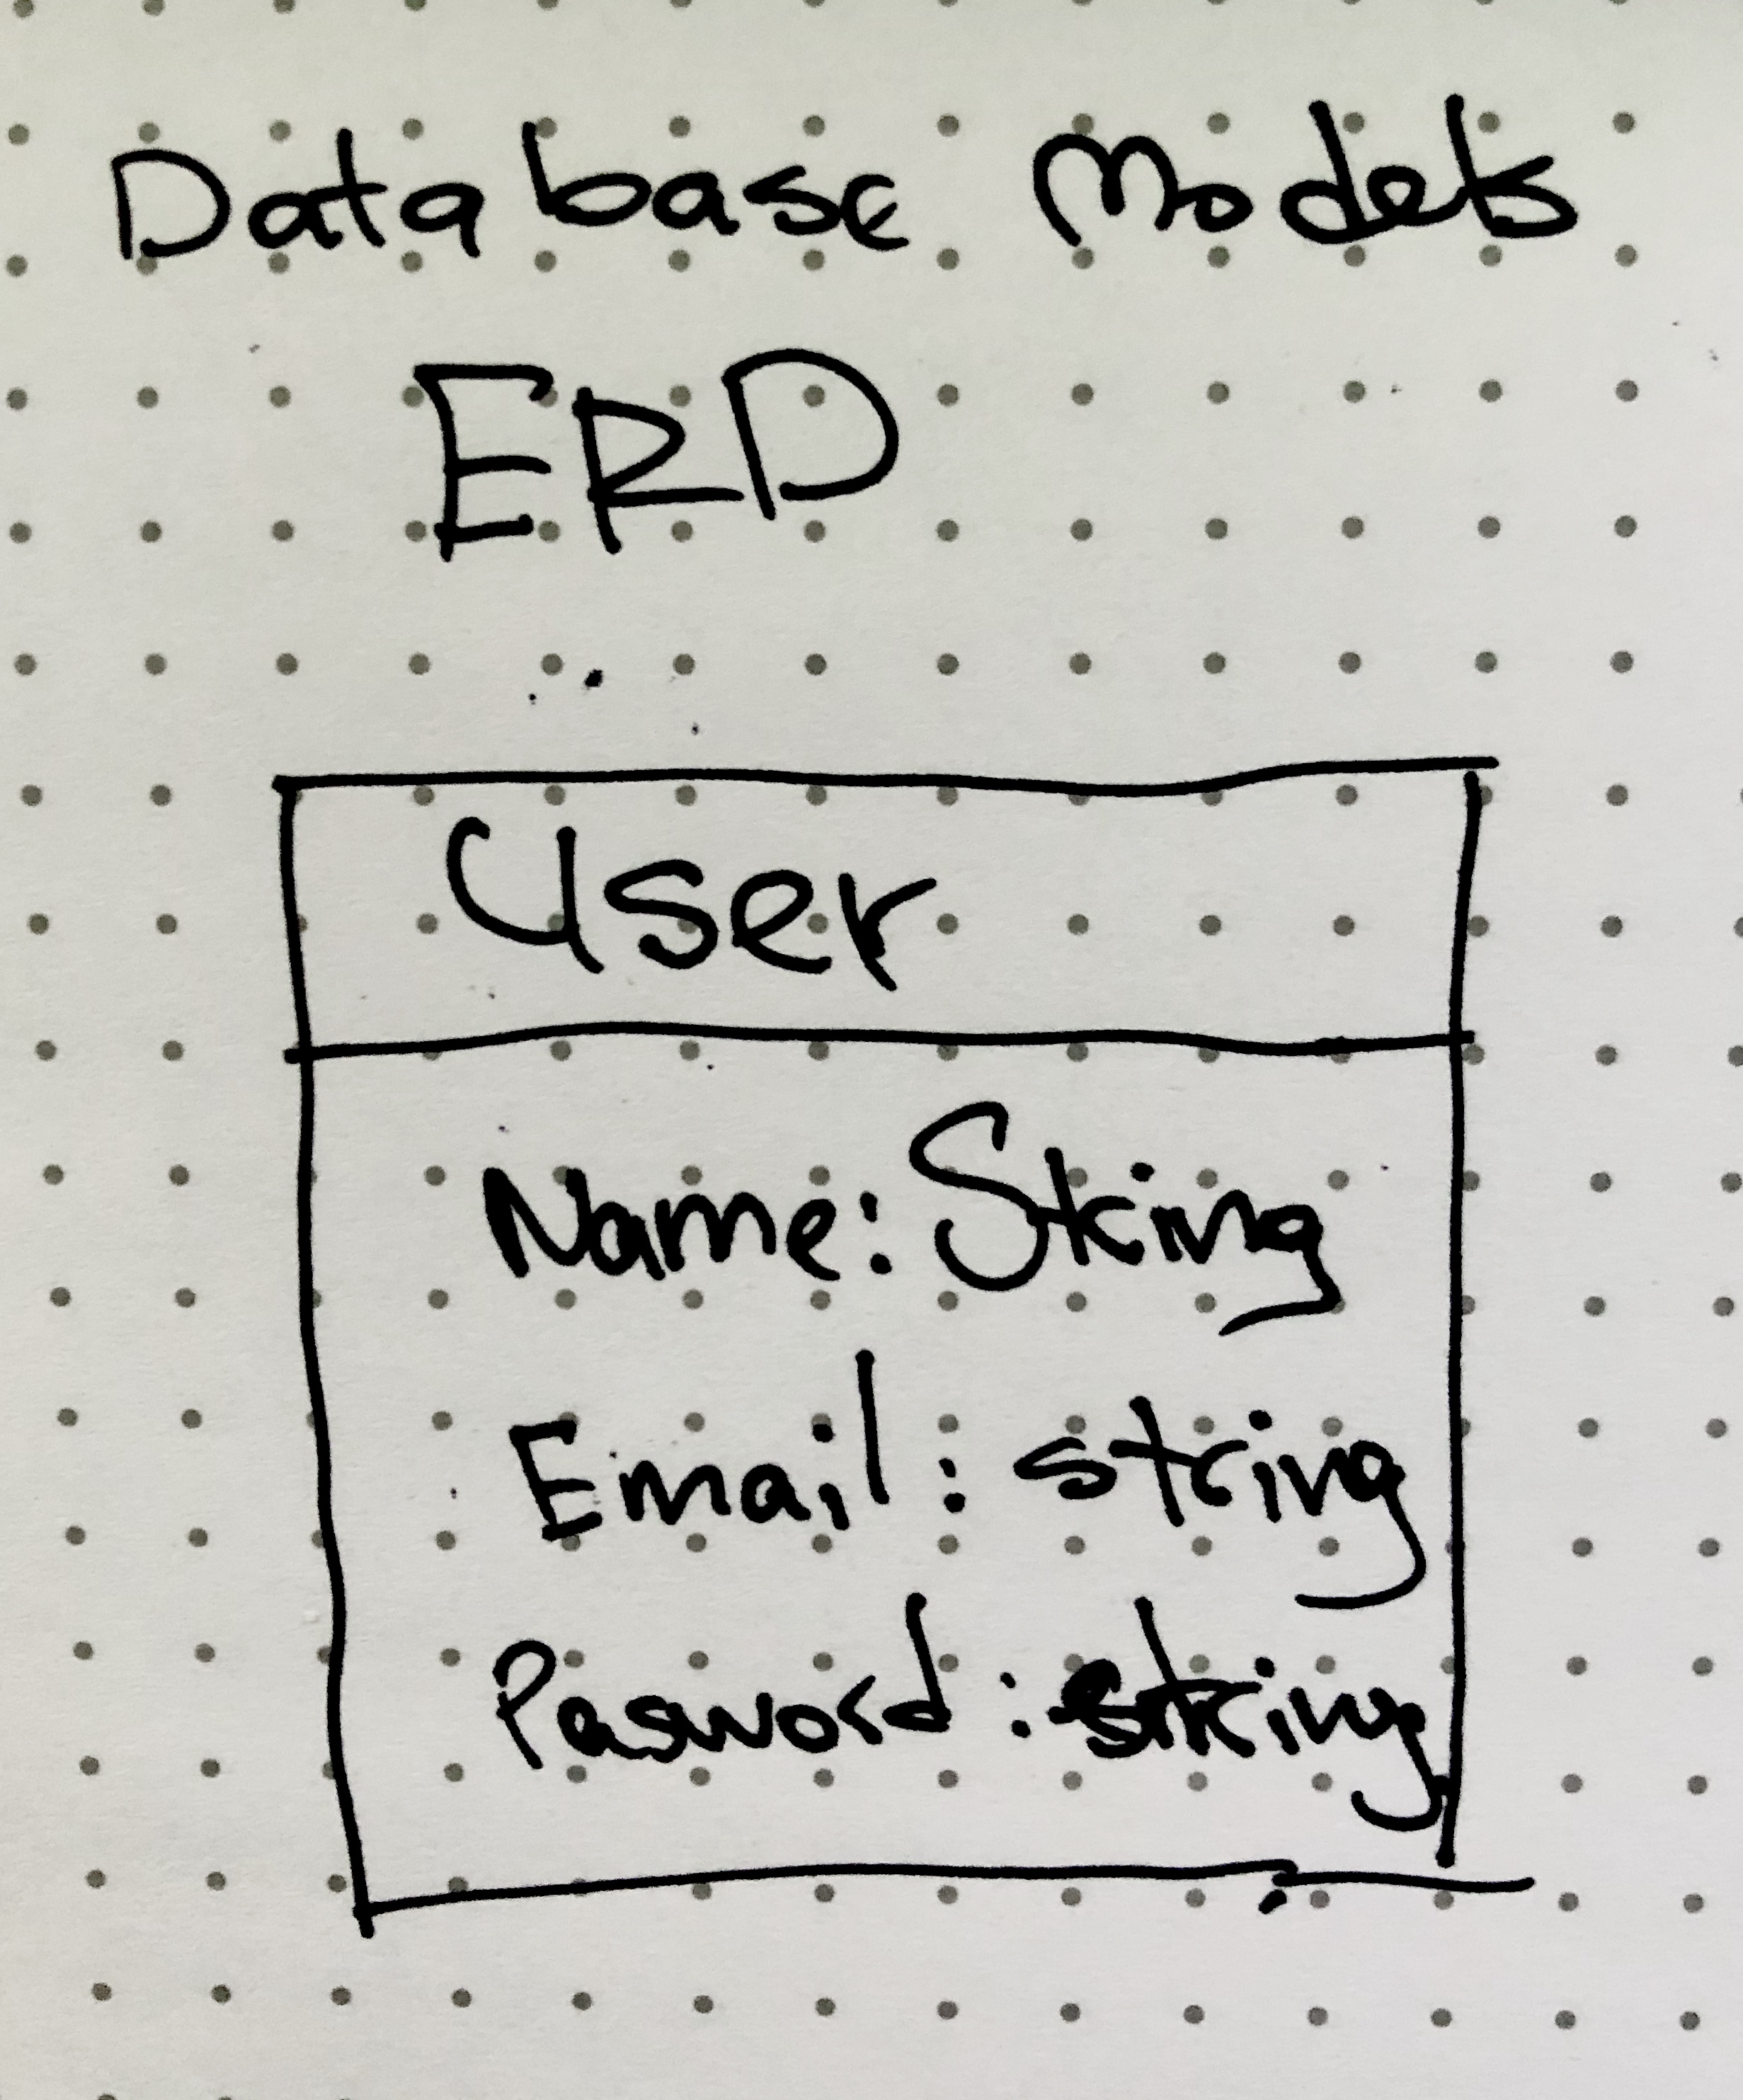 Database Models
ERD
User
Name: String
Email: string
Pasword: string